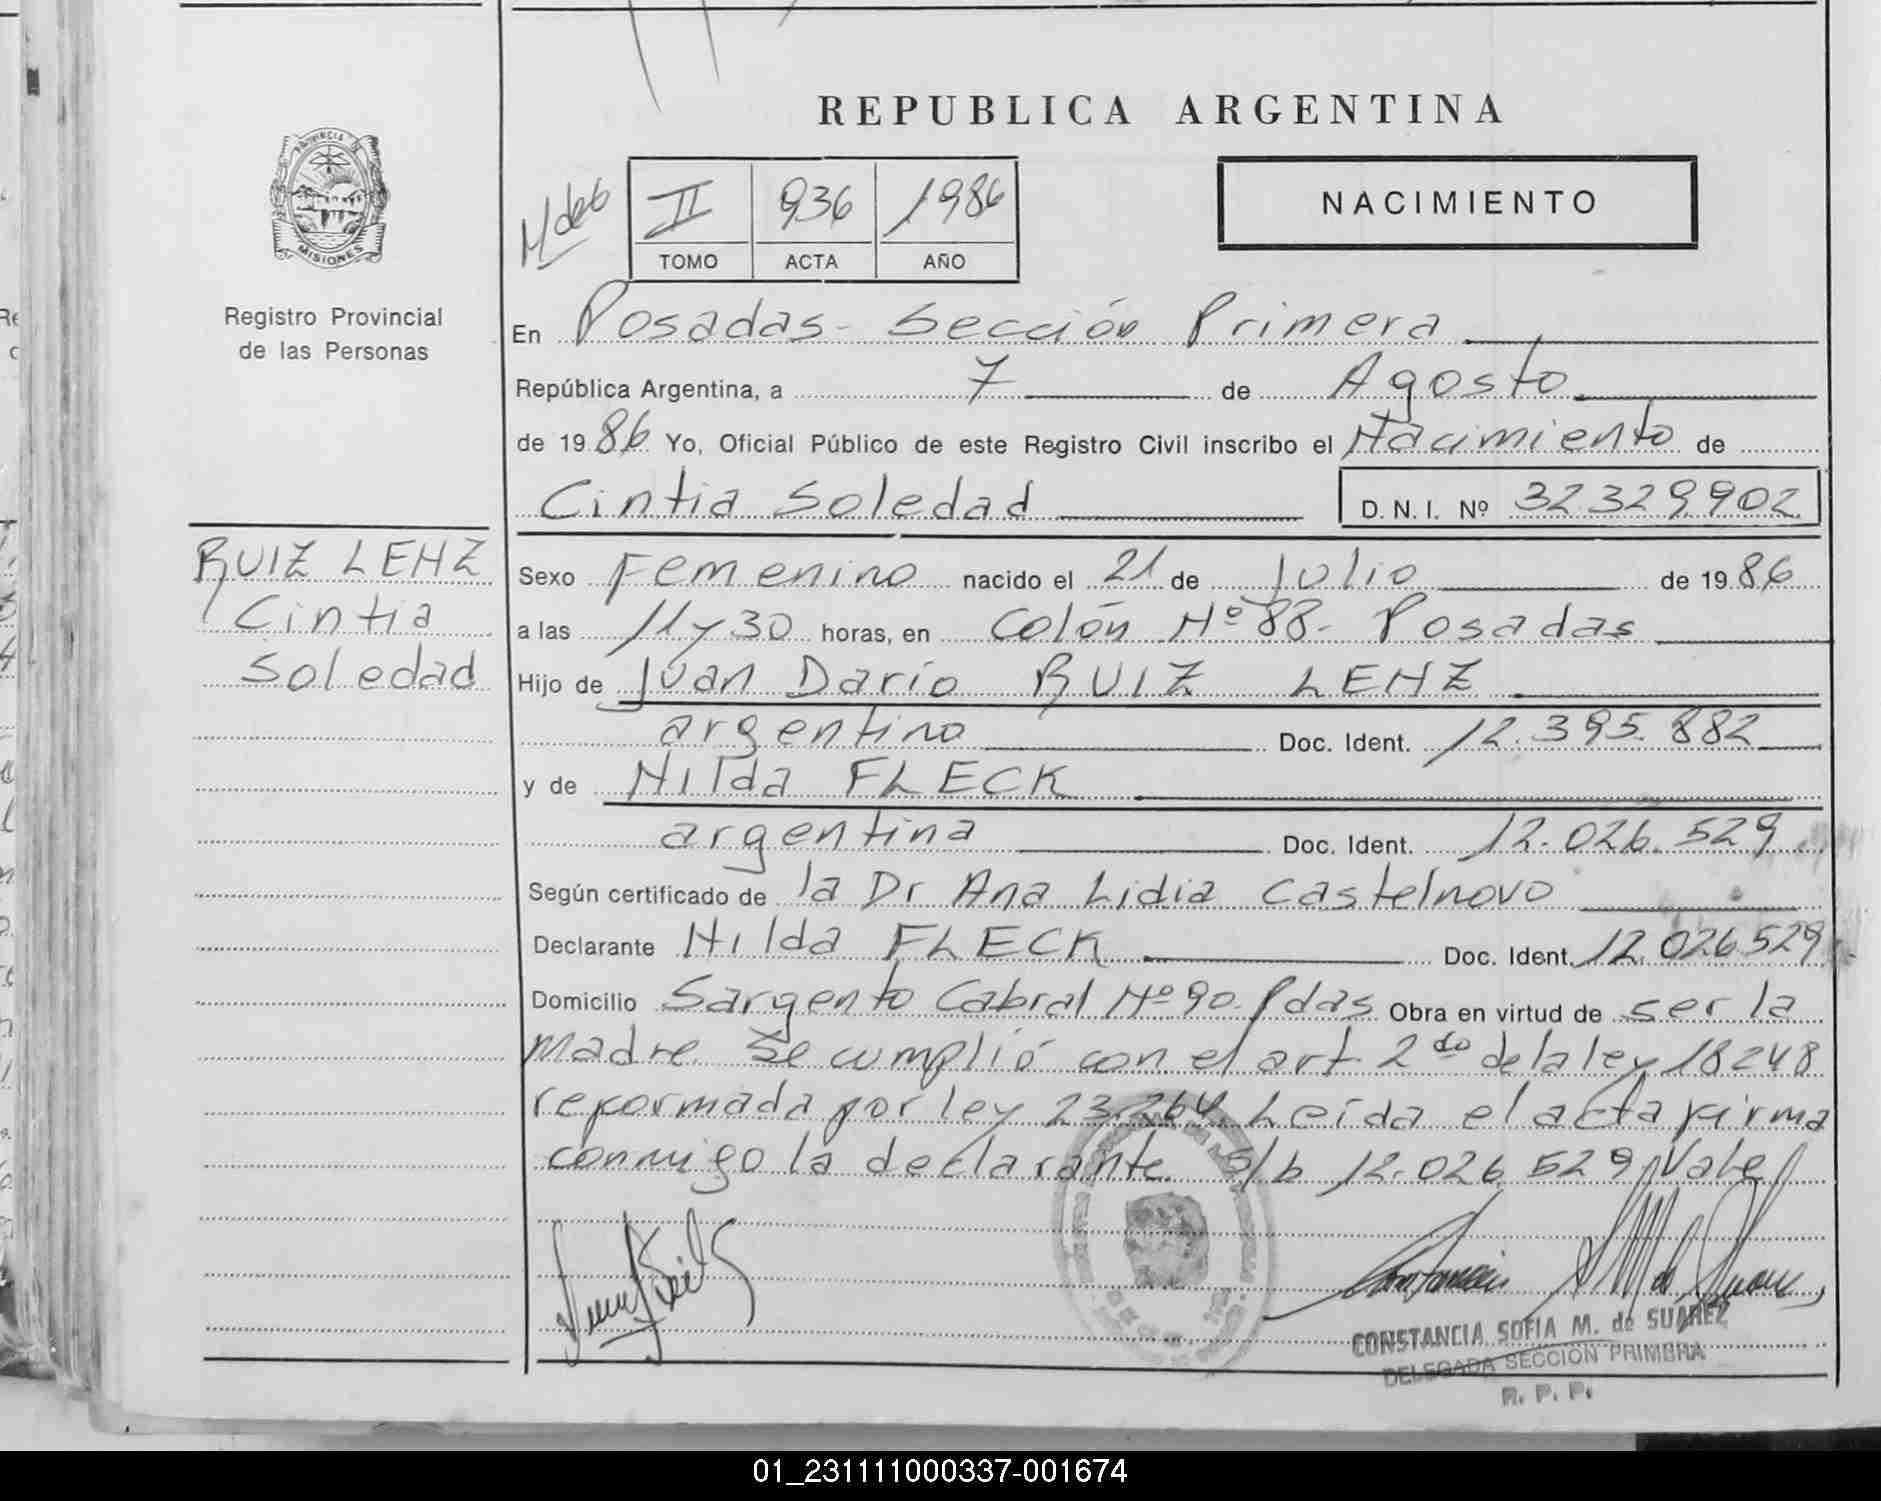 REPUBLICA ARGENTINA
PROVINCIA DE
MISIONES
Registro Provincial
de las Personas
II 936 1986
TOMO ACTA AÑO
NACIMIENTO
En Posadas - Sección Primera
República Argentina, a 7 de Agosto
de 1986 Yo, Oficial Público de este Registro Civil inscribo el Nacimiento de
Cintia Soledad D. N. I. Nº 32329902
RUIZ LENZ
Cintia
Soledad
Sexo Femenino nacido el 21 de Julio de 1986
a las 11 y 30 horas, en Colón Nº 88 - Posadas
Hijo de Juan Darío RUIZ LENZ
argentino Doc. Ident. 12.395.882
y de Nilda FLECK
argentina Doc. Ident. 12.026.529
Según certificado de la Dr Ana Lidia Castelnovo
Declarante Nilda FLECK Doc. Ident. 12.026.529
Domicilio Sargento Cabral Nº 90 - Pdas Obra en virtud de ser la
madre. Se cumplió con el art 2do de la ley 18248
reformada por ley 23.264 Leída el acta firma
conmigo la declarante. S/b 12.026.529 Vale
CONSTANCIA SOFIA M. de SUAREZ
DELEGADA SECCION PRIMERA
R. P. P.
01_231111000337-001674